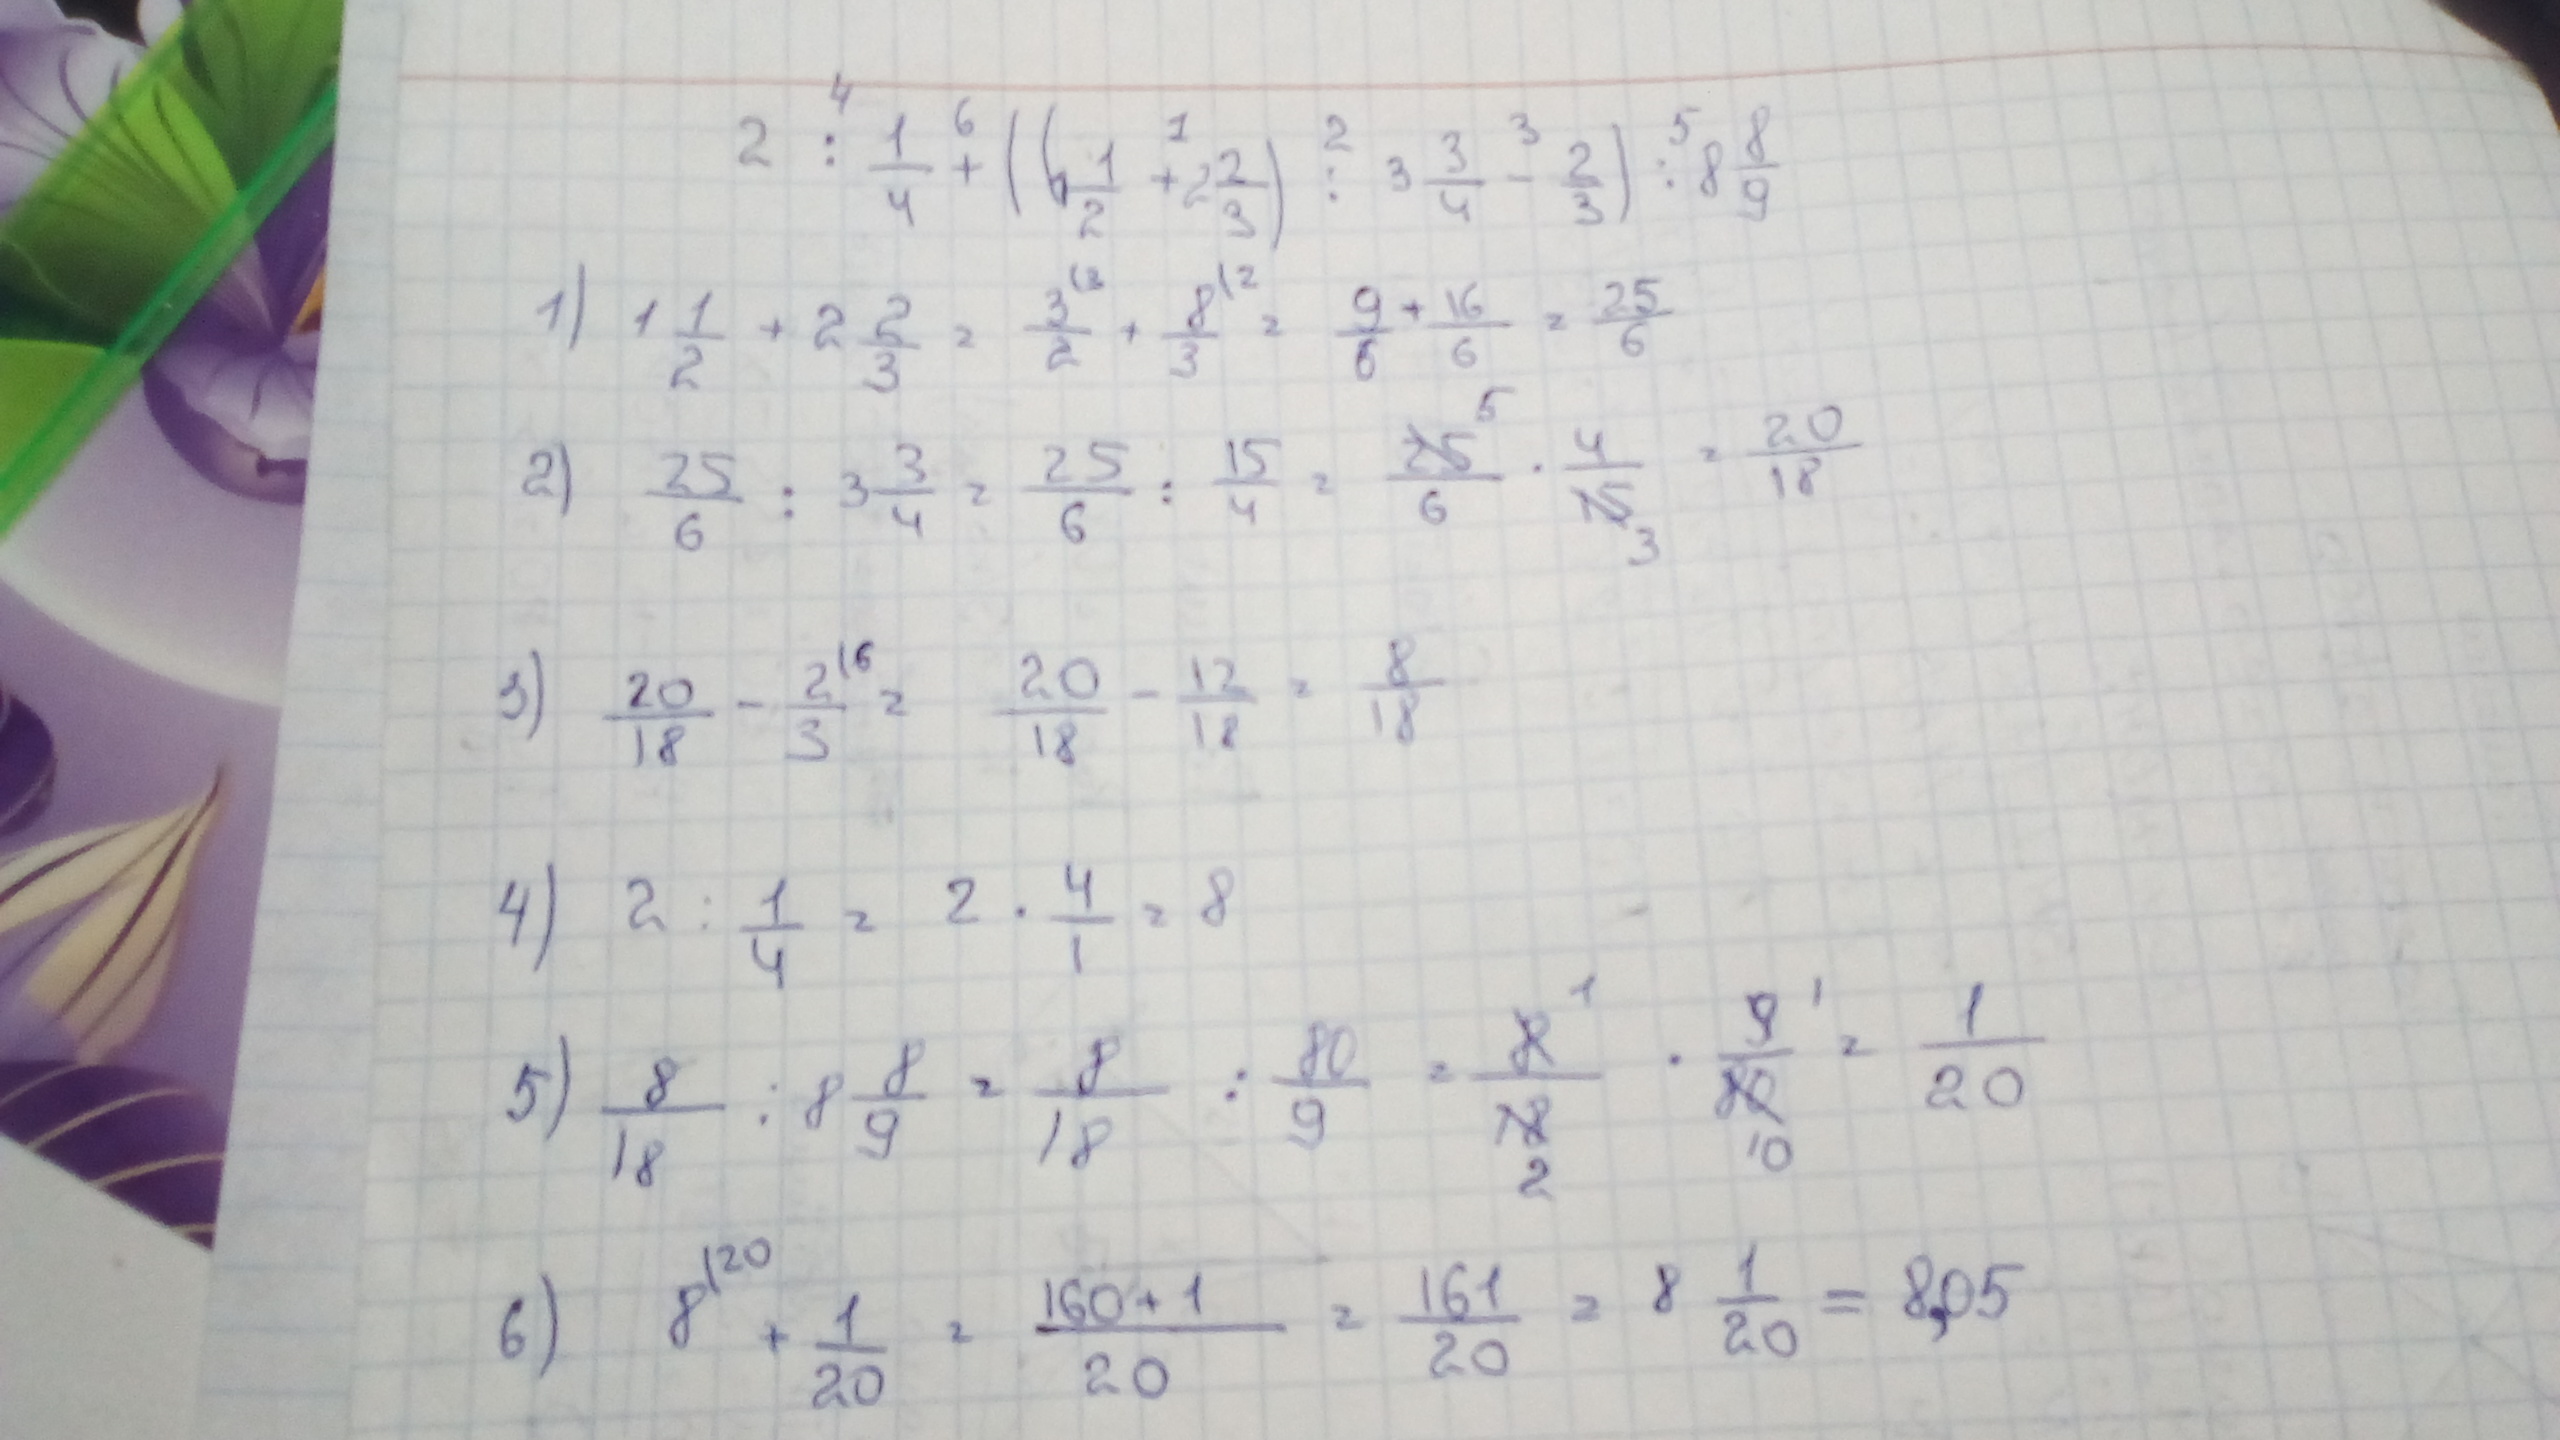 2 :⁴ 1/4 +⁶ ((1 1/2 +¹ 2 2/3) :² 3 3/4 -³ 2/3) :⁵ 8 8/9
1) 1 1/2 + 2 2/3 = 3/2 \3 + 8/3 \2 = 9/6 + 16/6 = 25/6
2) 25/6 : 3 3/4 = 25/6 : 15/4 = 25⁵/6 · 4/15₃ = 20/18
3) 20/18 - 2/3 \6 = 20/18 - 12/18 = 8/18
4) 2 : 1/4 = 2 · 4/1 = 8
5) 8/18 : 8 8/9 = 8/18 : 80/9 = 8¹/18₂ · 9¹/80₁₀ = 1/20
6) 8 \20 + 1/20 = (160+1)/20 = 161/20 = 8 1/20 = 8,05